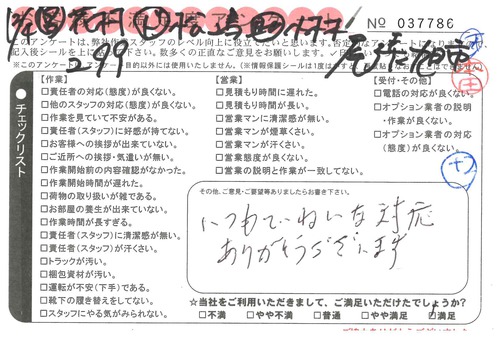 No 037786
このアンケートは、弊社
スタッフのレベル向上に役立てたいと思います。
記入後シールを上に
※このアンケート
【作業】
□責任者の対応(態度)が良くない。
□他のスタッフの対応(態度)が良くない。
□作業を見ていて不安がある。
□責任者(スタッフ)に好感が持てない。
□お客様への挨拶が出来ていない。
□ご近所への挨拶・気遣いが無い。
□作業開始前の内容確認がなかった。
□作業開始時間が遅れた。
□荷物の取り扱いが雑である。
□お部屋の養生が出来ていない。
□作業時間が長すぎる。
□責任者(スタッフ)に清潔感が無い。
□責任者(スタッフ)が汗くさい。
□トラックが汚い。
□梱包資材が汚い。
□運転が不安(下手)である。
□靴下の履き替えをしてない。
□スタッフにやる気がみられない。
【営業】
□見積もり時間に遅れた。
□見積もり時間が長い。
□営業マンに清潔感が無い。
□営業マンが煙草くさい。
□営業マンが汗くさい。
□営業態度が良くない。
□営業の説明と作業が一致してない。
【受付・その他】
□電話の対応が良くない。
□オプション業者の説明
・作業が良くない。
□オプション業者の対応
(態度)が良くない。
チェックリスト
その他、ご意見・ご要望等ありましたらお書き下さい。
いつもていねいな対応
ありがとうございます
☆当社をご利用いただきまして、ご満足いただけたでしょうか?
□不満 □やや不満 □普通 □やや満足 □満足